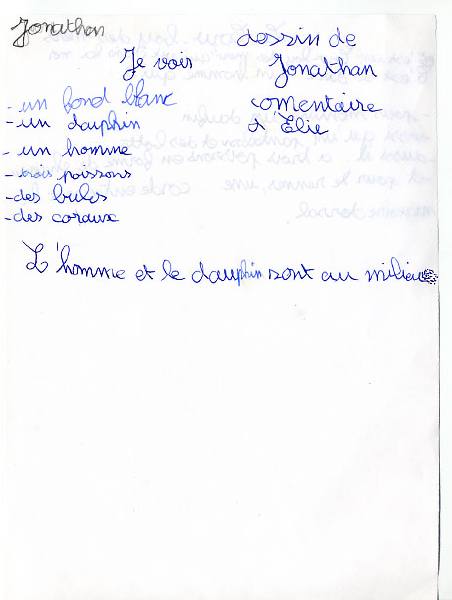 Jonathan
dessin de
Jonathan
comentaire
d'Elie
Je vois
- un fond blanc
- un dauphin
- un homme
- trois poissons
- des bules
- des coraux
L'homme et le dauphin sont au milieu